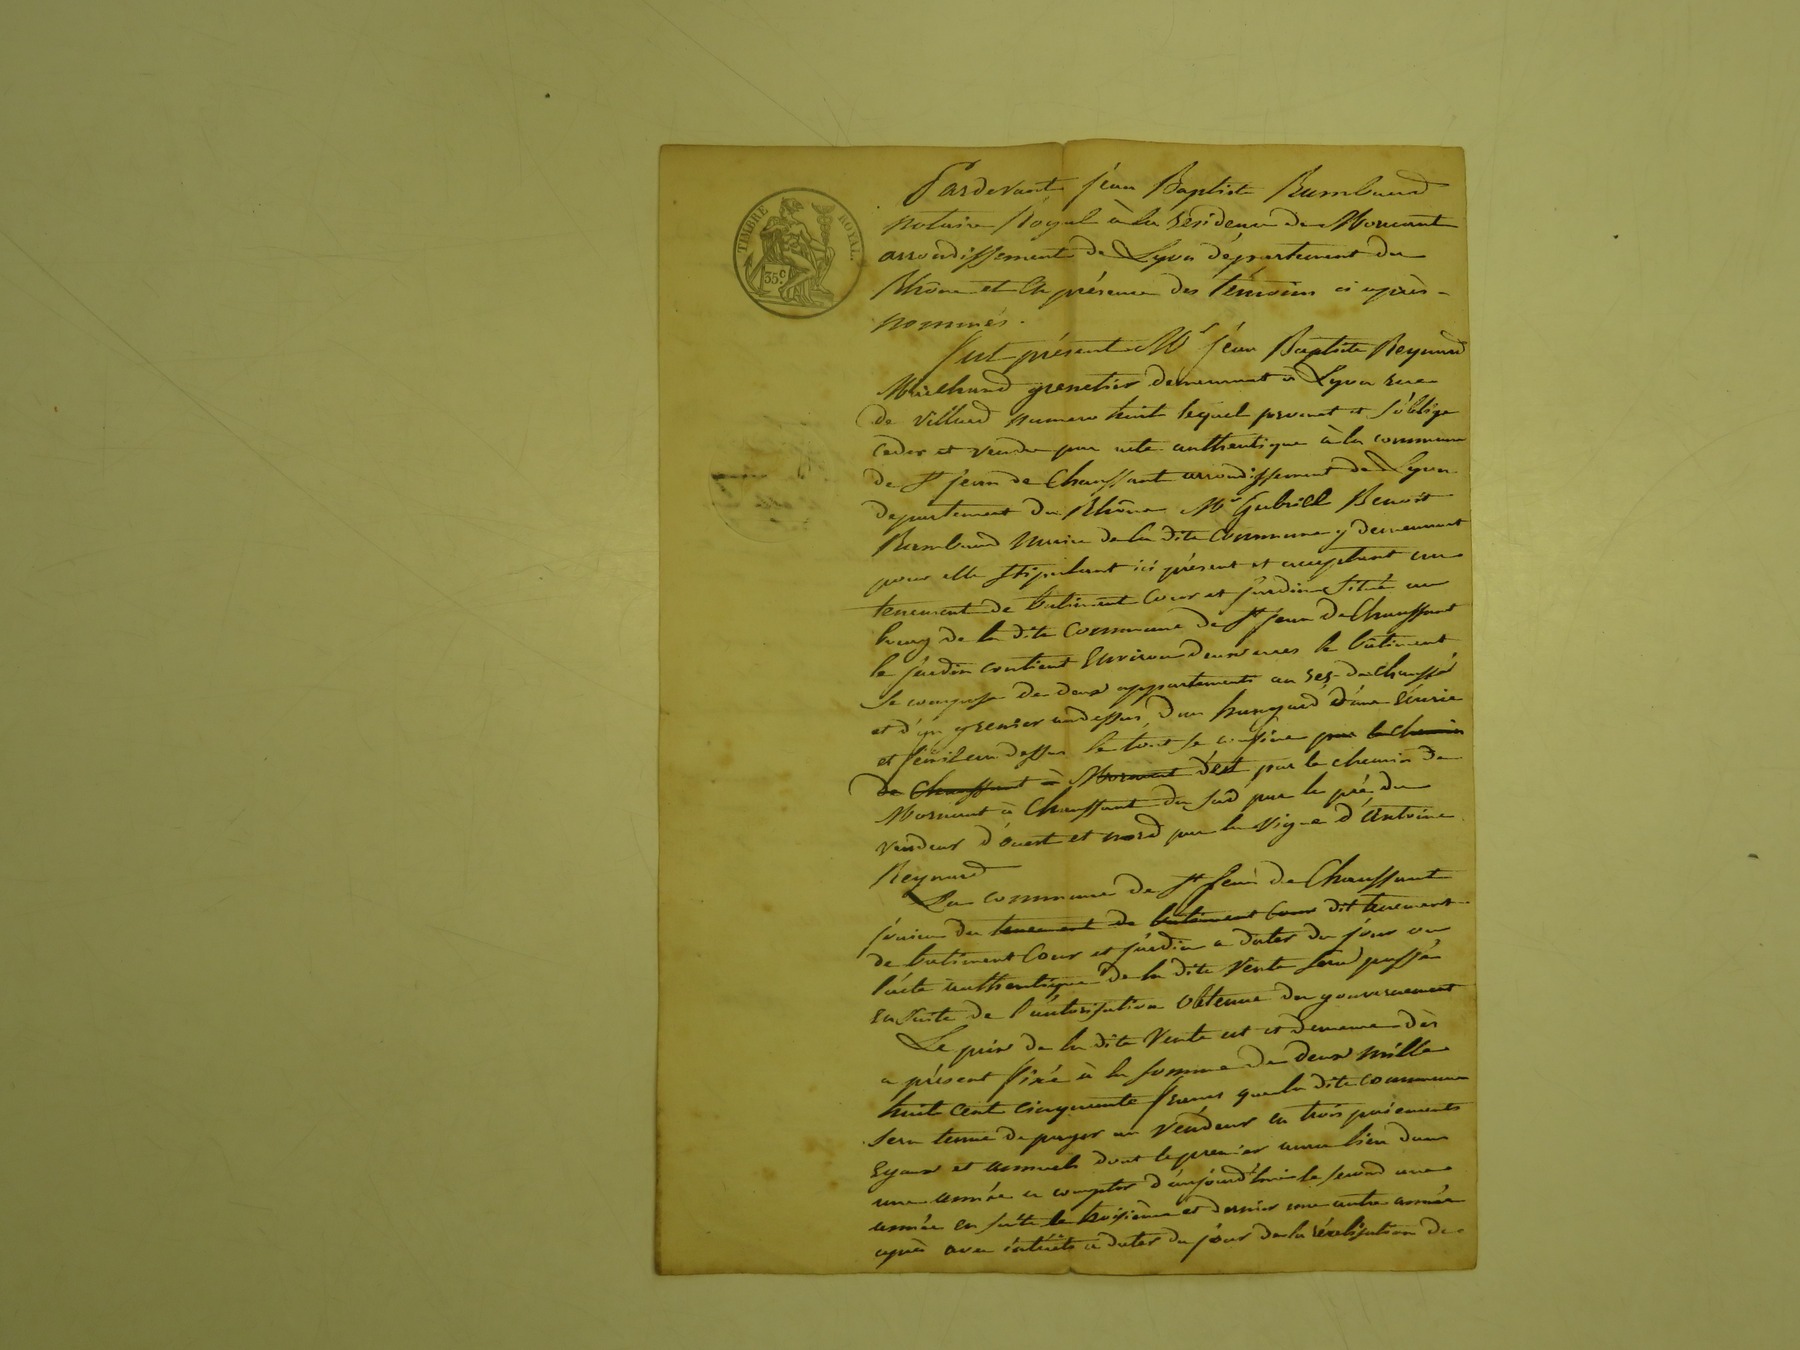 TIMBRE ROYAL.
35.c
Pardevant jean Baptiste Rambaud
notaire Royal à la résidence de Mornant
arrondissement de Lyon département du
Rhône et En présence des témoins ci après
nommés.
fut présent Mr jéan Baptiste Reynard
Marchand grenetier demeurant à Lyon rue
de Villard numero huit lequel promet et s'oblige
ceder et vendre par acte authentique à la commune
de St jean de Chaussant arrondissement de Lyon
departement du Rhône Mr Gabriel Benoit
Rambaud Maire de la dite Commune y demeurant
pour elle stipulant ici présent et acceptant un
tenement de batiment Cour et jardin situé au
bourg de la dite Commune de St jean de Chaussant
le jardin contient Environ deux ares le bâtiment
se compose de deux appartements au rez-de-Chaussé
et d'un grenier au dessus, d'un hangard d'une Ecurie
et fenil au dessus le tout se confine par le chemin
de Chaussant à Mornant d'est par le chemin de
Mornant à Chaussant du sud par le pré du
vendeur d'ouest et nord par la vigne d'Antoine
Reynard
La commune de St jean de Chaussant
jouira du tenement de batiment Cour dit tenement
de batiment Cour et jardin a dater du jour ou
l'acte authentique de la dite Vente sera passé
En suite de l'autorisation obtenue du gouvernement
Le prix de la dite Vente est et demeure dès
a présent fixé à la somme de deux mille
huit cent cinquante francs que la dite commune
sera tenue de payer au vendeur en trois paiements
Egaux et annuels dont le premier aura lieu dans
une année a compter d'aujourd'hui le second une
année en suite le troisième et dernier une autre année
après avec intérêts a dater du jour de la réalisation de